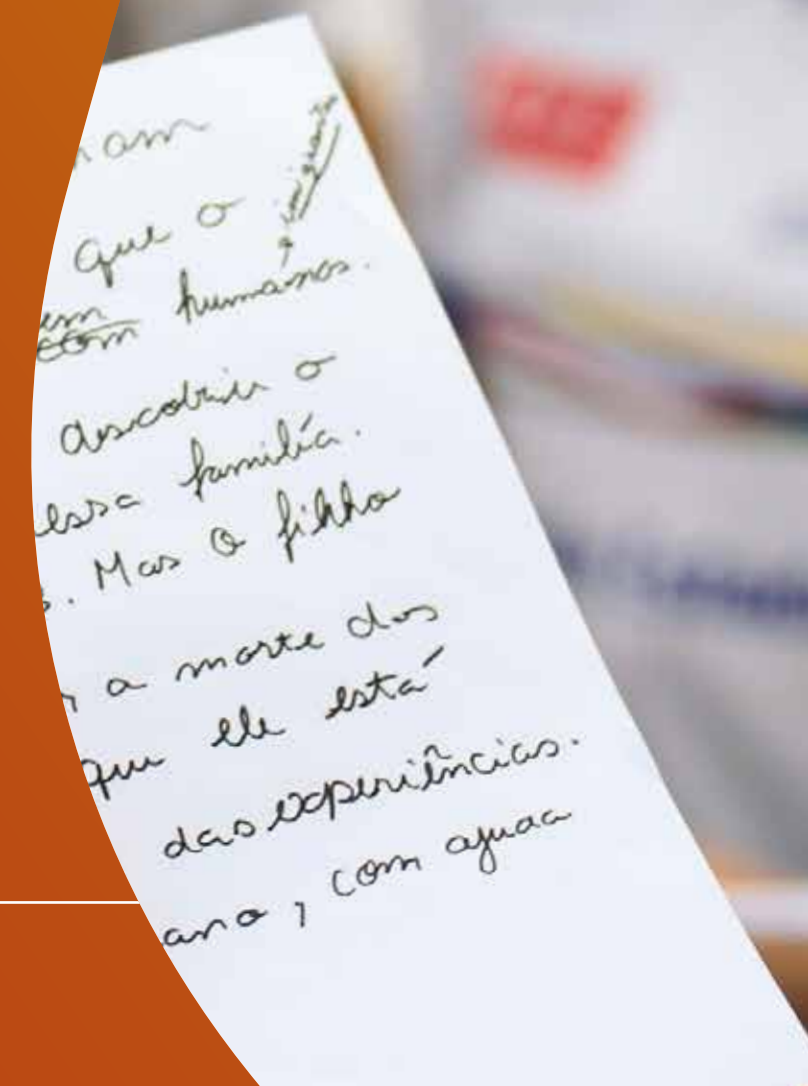 am
que o
em com humanos.
descobriu o
essa família.
. Mas o filho
a morte dos
que ele está
das experiências.
ano, com ajuda